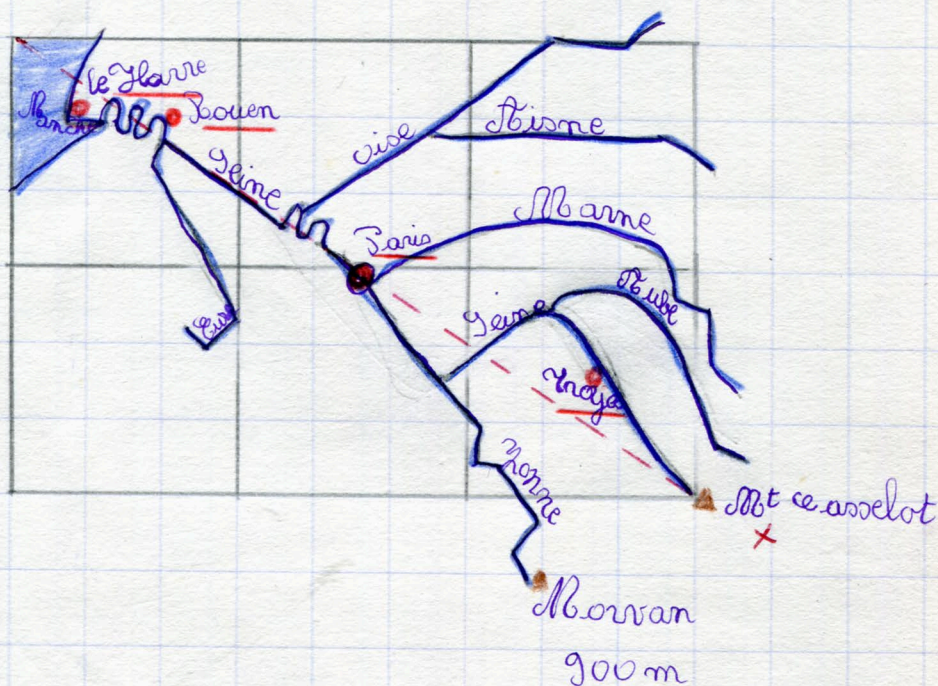 le Havre
Manche
Rouen
Oise
Aisne
Seine
Marne
Paris
Aube
Seine
Eure
Troyes
Yonne
Mt ce asselot
x
Morvan
900 m